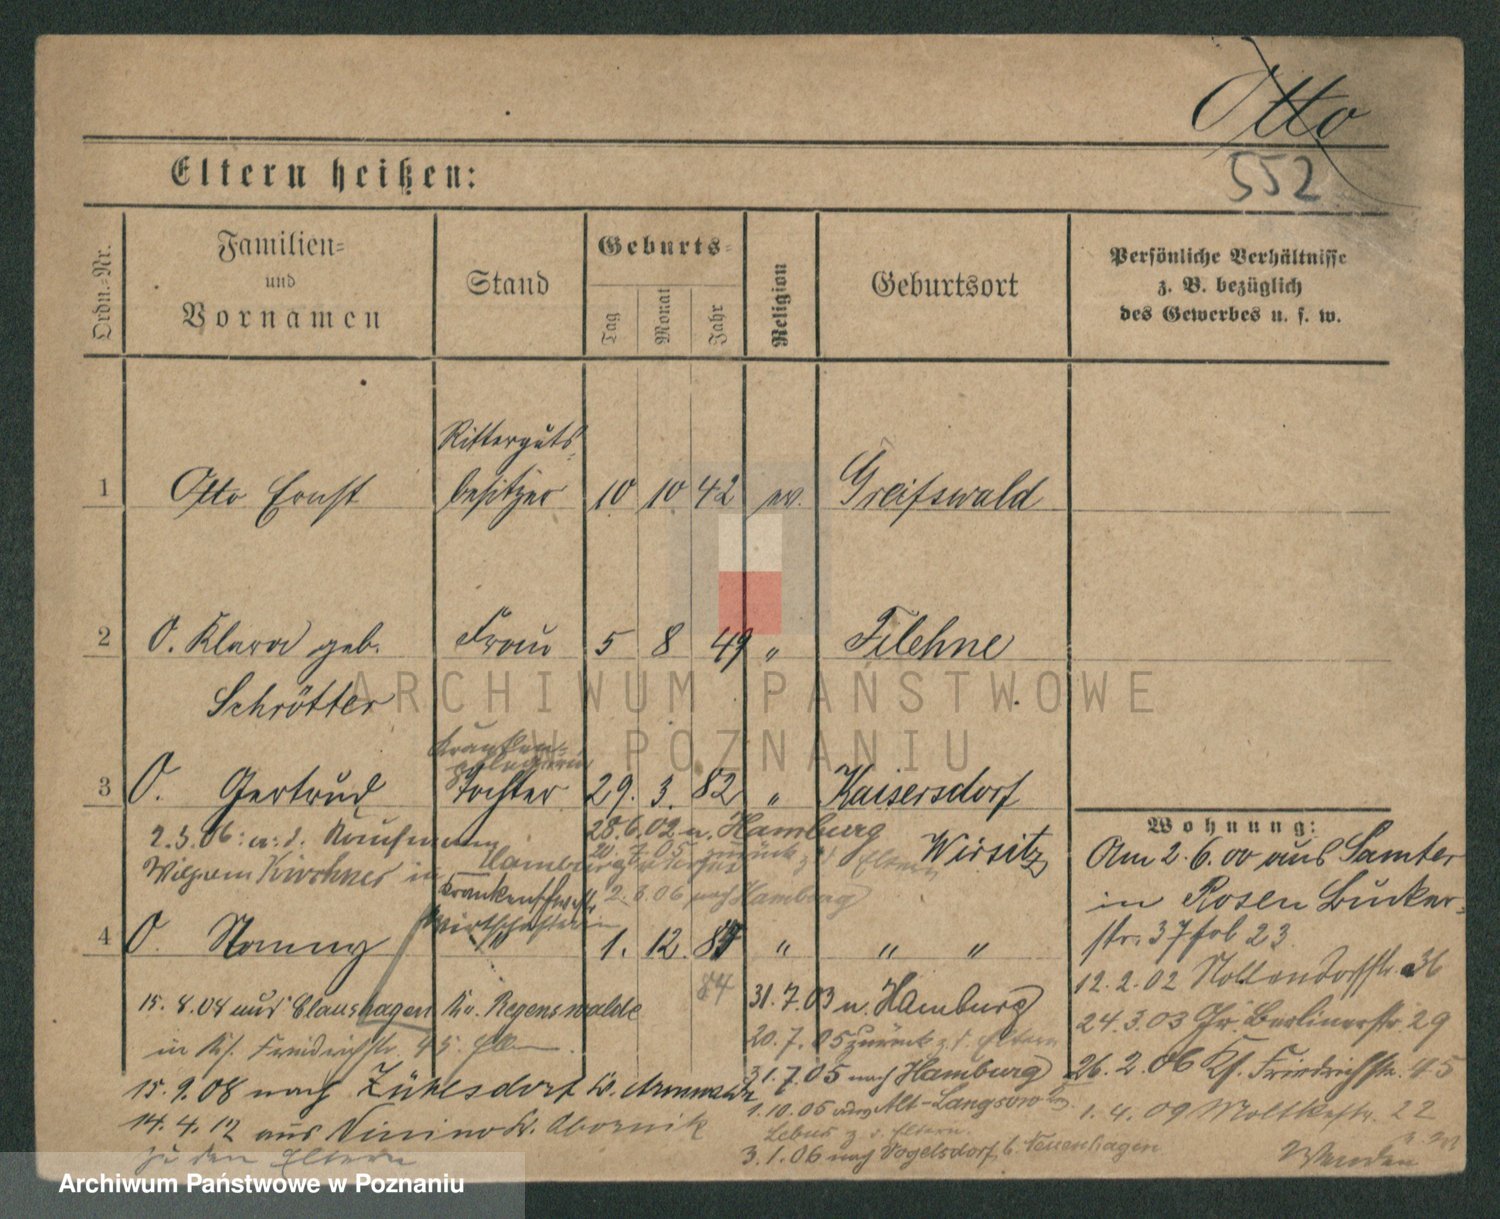 Otto
552
Eltern heißen:
Ordn.-Nr.
Familien-
und
Vornamen
Stand
Geburts-
Tag
Monat
Jahr
Religion
Geburtsort
Persönliche Verhältnisse
z. B. bezüglich
des Gewerbes u. s. w.
Ritterguts-
1 Otto Ernst besitzer 10 10 42 ev. Greifswald
2 O. Klara geb. Frau 5 8 49 " Filehne
Schrötter
Kranken-
pflegerin
3 O. Gertrud Tochter 29. 3. 82 " Kaisersdorf
Wirsitz
2.3.06: Kaufmann
Wilhelm Kirchner in Hamburg
28.6.02 n. Hamburg
20.7.05 zurück z. d. Eltern
2.3.06 nach Hamburg
Krankenschwester
Wirtschafterin
4 O. Nanny " 1. 12. 84 " " "
84
15.8.08 aus Claushagen Kr. Regenswalde
in Friedrichstr. 45
15.9.08 nach Zühlsdorf Kr. Arnswalde
14.4.12 aus Ninino Kr. Obornik
zu den Eltern
31.7.03 n. Hamburg
20.7.05 zurück z. d. Eltern
31.7.05 nach Hamburg
1.10.05 Alt-Langsow
Lebus z. d. Eltern.
3.1.06 nach Vogelsdorf b. Neuenhagen
Wohnung:
Am 2.6.00 aus Samter
in Posen Bucker-
str. 37 23
12.2.02 Nollendorfstr. 36
24.3.03 Gr. Berlinerstr. 29
26.2.06 Friedrichstr. 45
1.4.09 Moltkestr. 22
Wenden
ARCHIWUM PAŃSTWOWE
W POZNANIU
Archiwum Państwowe w Poznaniu